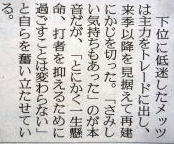 下位に低迷したメッツ
は主力をトレードに出し、
来季以降を見据えて再建
にかじを切った。「さみし
い気持ちもあった」のが本
音だが、「とにかく一生懸
命、打者を抑えるために
過ごすことは変わらない」
と自らを奮い立たせてい
る。